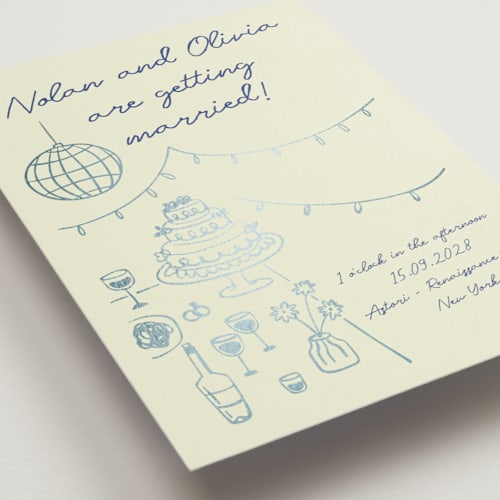 Nolan and Olivia
are getting
married!
1 o'clock in the afternoon
15.09.2028
Astori - Renaissance
New York